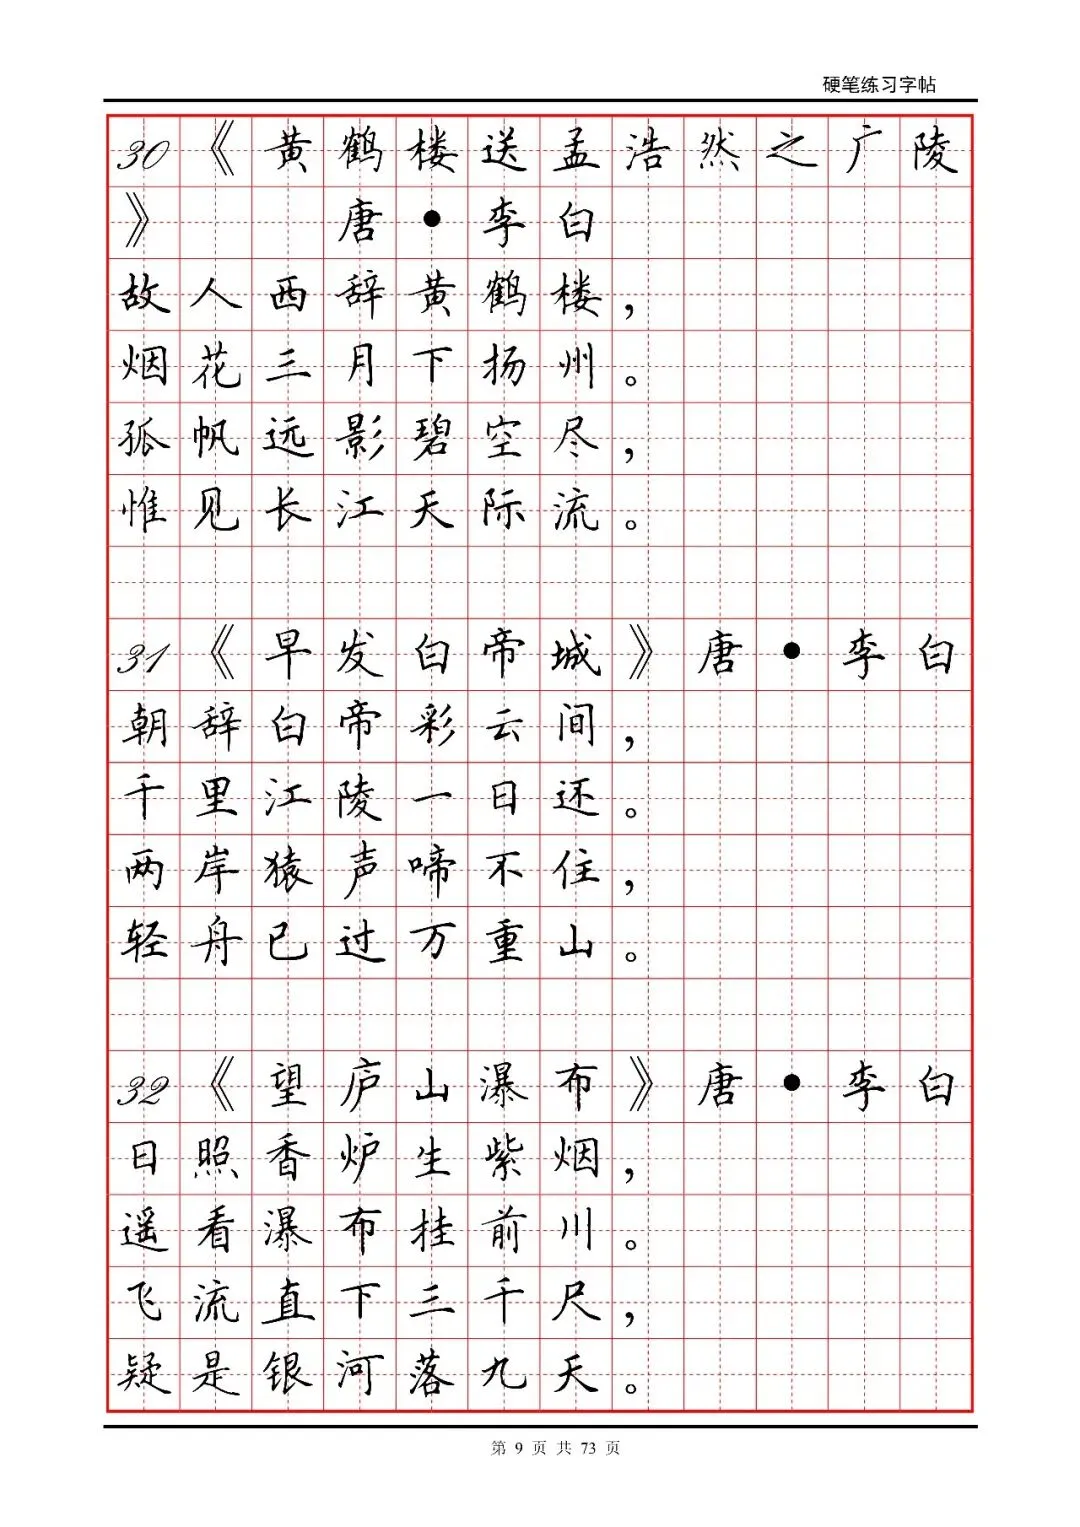 硬笔练习字帖
30《黄鹤楼送孟浩然之广陵
》 唐●李白
故人西辞黄鹤楼，
烟花三月下扬州。
孤帆远影碧空尽，
惟见长江天际流。
31《早发白帝城》唐●李白
朝辞白帝彩云间，
千里江陵一日还。
两岸猿声啼不住，
轻舟已过万重山。
32《望庐山瀑布》唐●李白
日照香炉生紫烟，
遥看瀑布挂前川。
飞流直下三千尺，
疑是银河落九天。
第 9 页 共 73 页